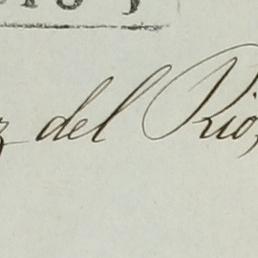 z del Rio,